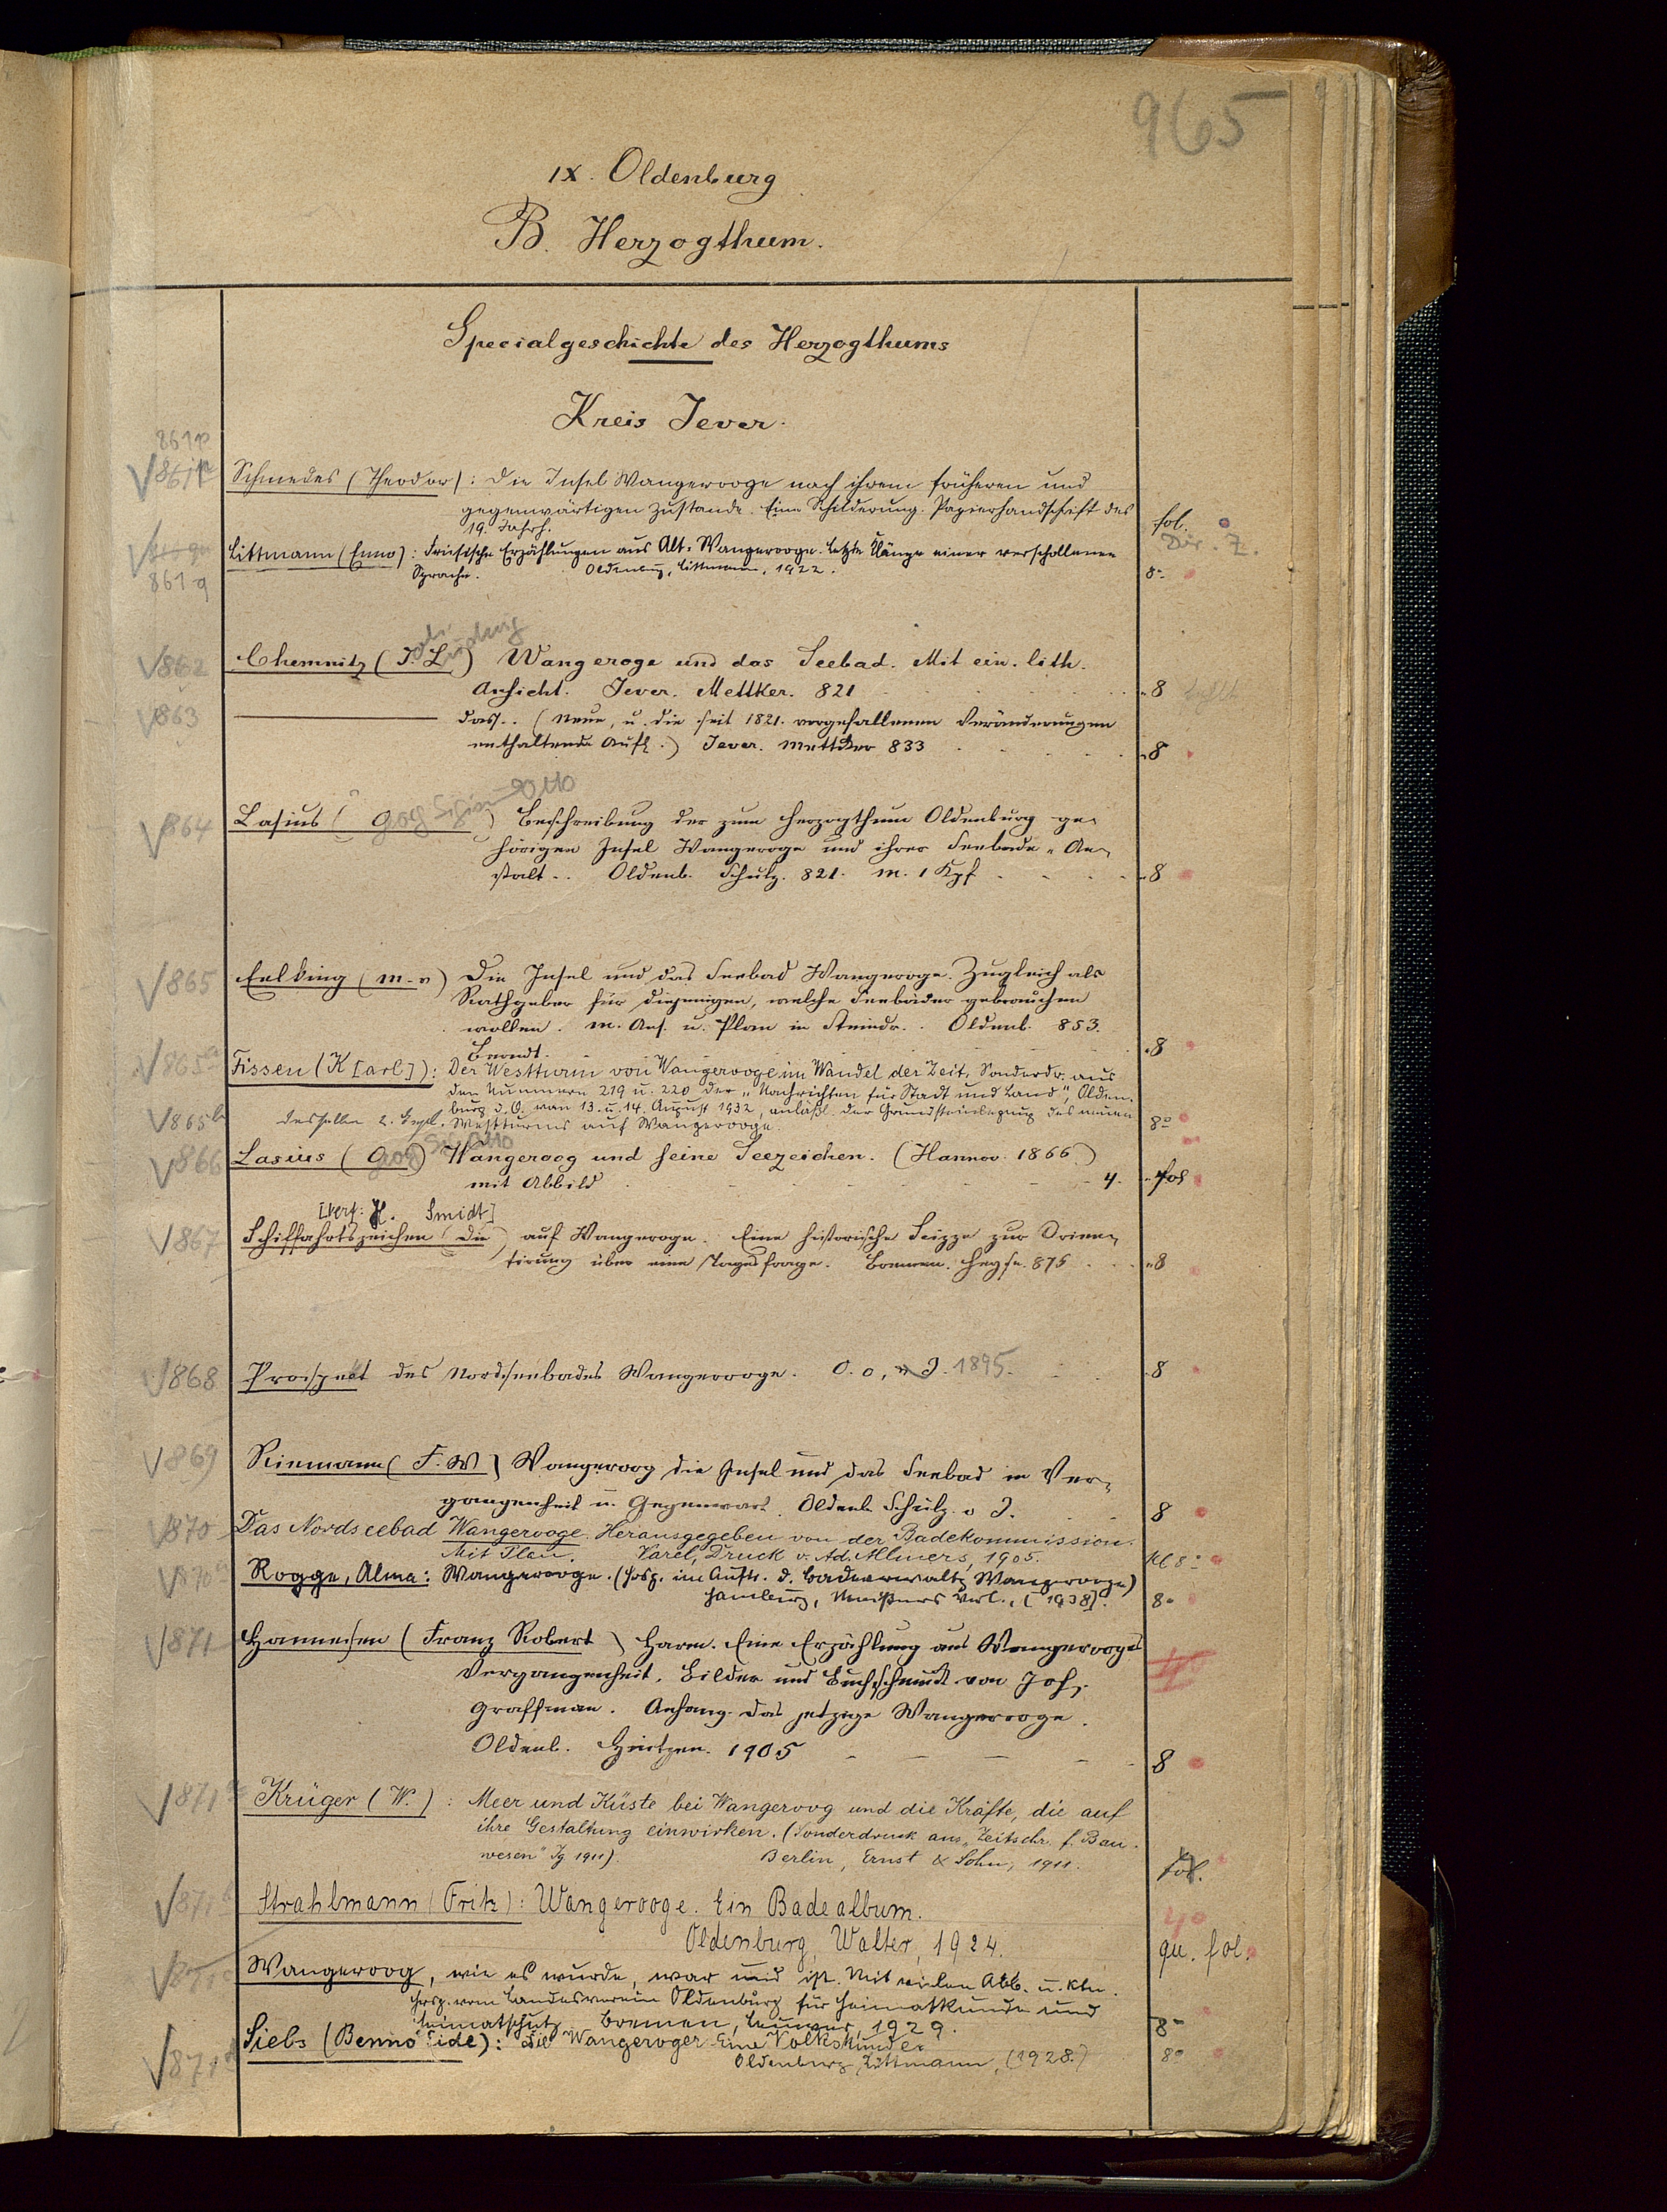 965
IX. Oldenburg
B. Herzogthum.
Specialgeschichte des Herzogthums
Kreis Jever.
861p
861p Schmedes (Theodor): Die Insel Wangerooge nach ihrem früheren und
gegenwärtigen Zustande. Eine Schilderung. Papierhandschrift des
19. Jahrh. fol.
Littmann (Enno): Friesische Erzählungen aus Alt-Wangerooge. Letzte Klänge einer verschollenen
861q Sprache. Oldenburg, Littmann, 1922. 8°
862 Chemnitz (Joh. Ludwig) Wangeroge und das Seebad. Mit ein. lith.
Ansicht. Jever. Mettker. 821 8
863 dass.. (Neue, u. die seit 1821. vorgefallenen Veränderungen
enthaltende Aufl.) Jever. Mettker 833 8
864 Lasius (Otto) Beschreibung der zum Herzogthum Oldenburg ge-
hörigen Insel Wangeroge und ihrer Seebade-An-
stalt.. Oldenb. Schulz. 821. m. 1 Kpf 8
865 Eelking (M. v) Die Insel und das Seebad Wangeroge. Zugleich als
Rathgeber für diejenigen, welche Seebäder gebrauchen
wollen. m. Ans. u. Plan in Steindr. Oldenb. 853.
Berndt. 8
865a Fissen (K[arl]): Der Westturm von Wangerooge im Wandel der Zeit, Sonderdr. aus
den Nummern 219 u. 220 der "Nachrichten für Stadt und Land", Olden-
burg i. O. vom 13. u. 14. August 1932, anläßl. der Grundsteinlegung des neuen
865b desselben 2. Expl. Westturms auf Wangerooge. 8°
866 Lasius (Otto) Wangeroog und seine Seezeichen. (Hannov. 1866.)
mit Abbild 4. fol
[Verf: H. Smidt]
867 Schiffahrtszeichen (Die) auf Wangeroge. Eine historische Scizze zur Orien-
tirung über eine Tagesfrage. Bremen. Heyse. 875 8
868 Prospekt des Nordseebades Wangerooge. O. O. u J. 1895. 8
869 Riemann (F. W) Wangeroog die Insel und das Seebad in Ver-
gangenheit u. Gegenwart. Oldenb. Schulz. o J. 8
870 Das Nordseebad Wangerooge. Herausgegeben von der Badekommission.
Mit Plan. Varel, Druck v. Ad. Allmers, 1905. Kl 8°
870a Rogge, Alma: Wangerooge. (Hrsg. im Auftr. d. Badeverwaltg Wangerooge)
Hamburg, Meißners Verl., [1938]. 8°
871 Hannesen (Franz Robert) Harm. Eine Erzählung aus Wangerooges
Vergangenheit. Bilder und Buchschmuck von Joh.
Graffman. Anhang: das jetzige Wangerooge.
Oldenb. Hintzen. 1905 8
871a Krüger (W.): Meer und Küste bei Wangeroog und die Kräfte, die auf
ihre Gestaltung einwirken. (Sonderdruck aus "Zeitschr. f. Bau-
wesen" Jg 1911). Berlin, Ernst & Sohn, 1911. fol.
871b Strahlmann (Fritz): Wangerooge. Ein Badealbum.
Oldenburg, Walter, 1924. qu. fol.
871c Wangeroog, wie es wurde, war und ist. Mit vielen Abb. u. Ktn.
Hrsg. vom Landesverein Oldenburg für Heimatkunde und
Heimatschutz Bremen, Leuwer, 1929. 8°
871d Siebs (Benno Eide): Die Wangerooger. Eine Volkskunde.
Oldenburg, Littmann, (1928.) 8°